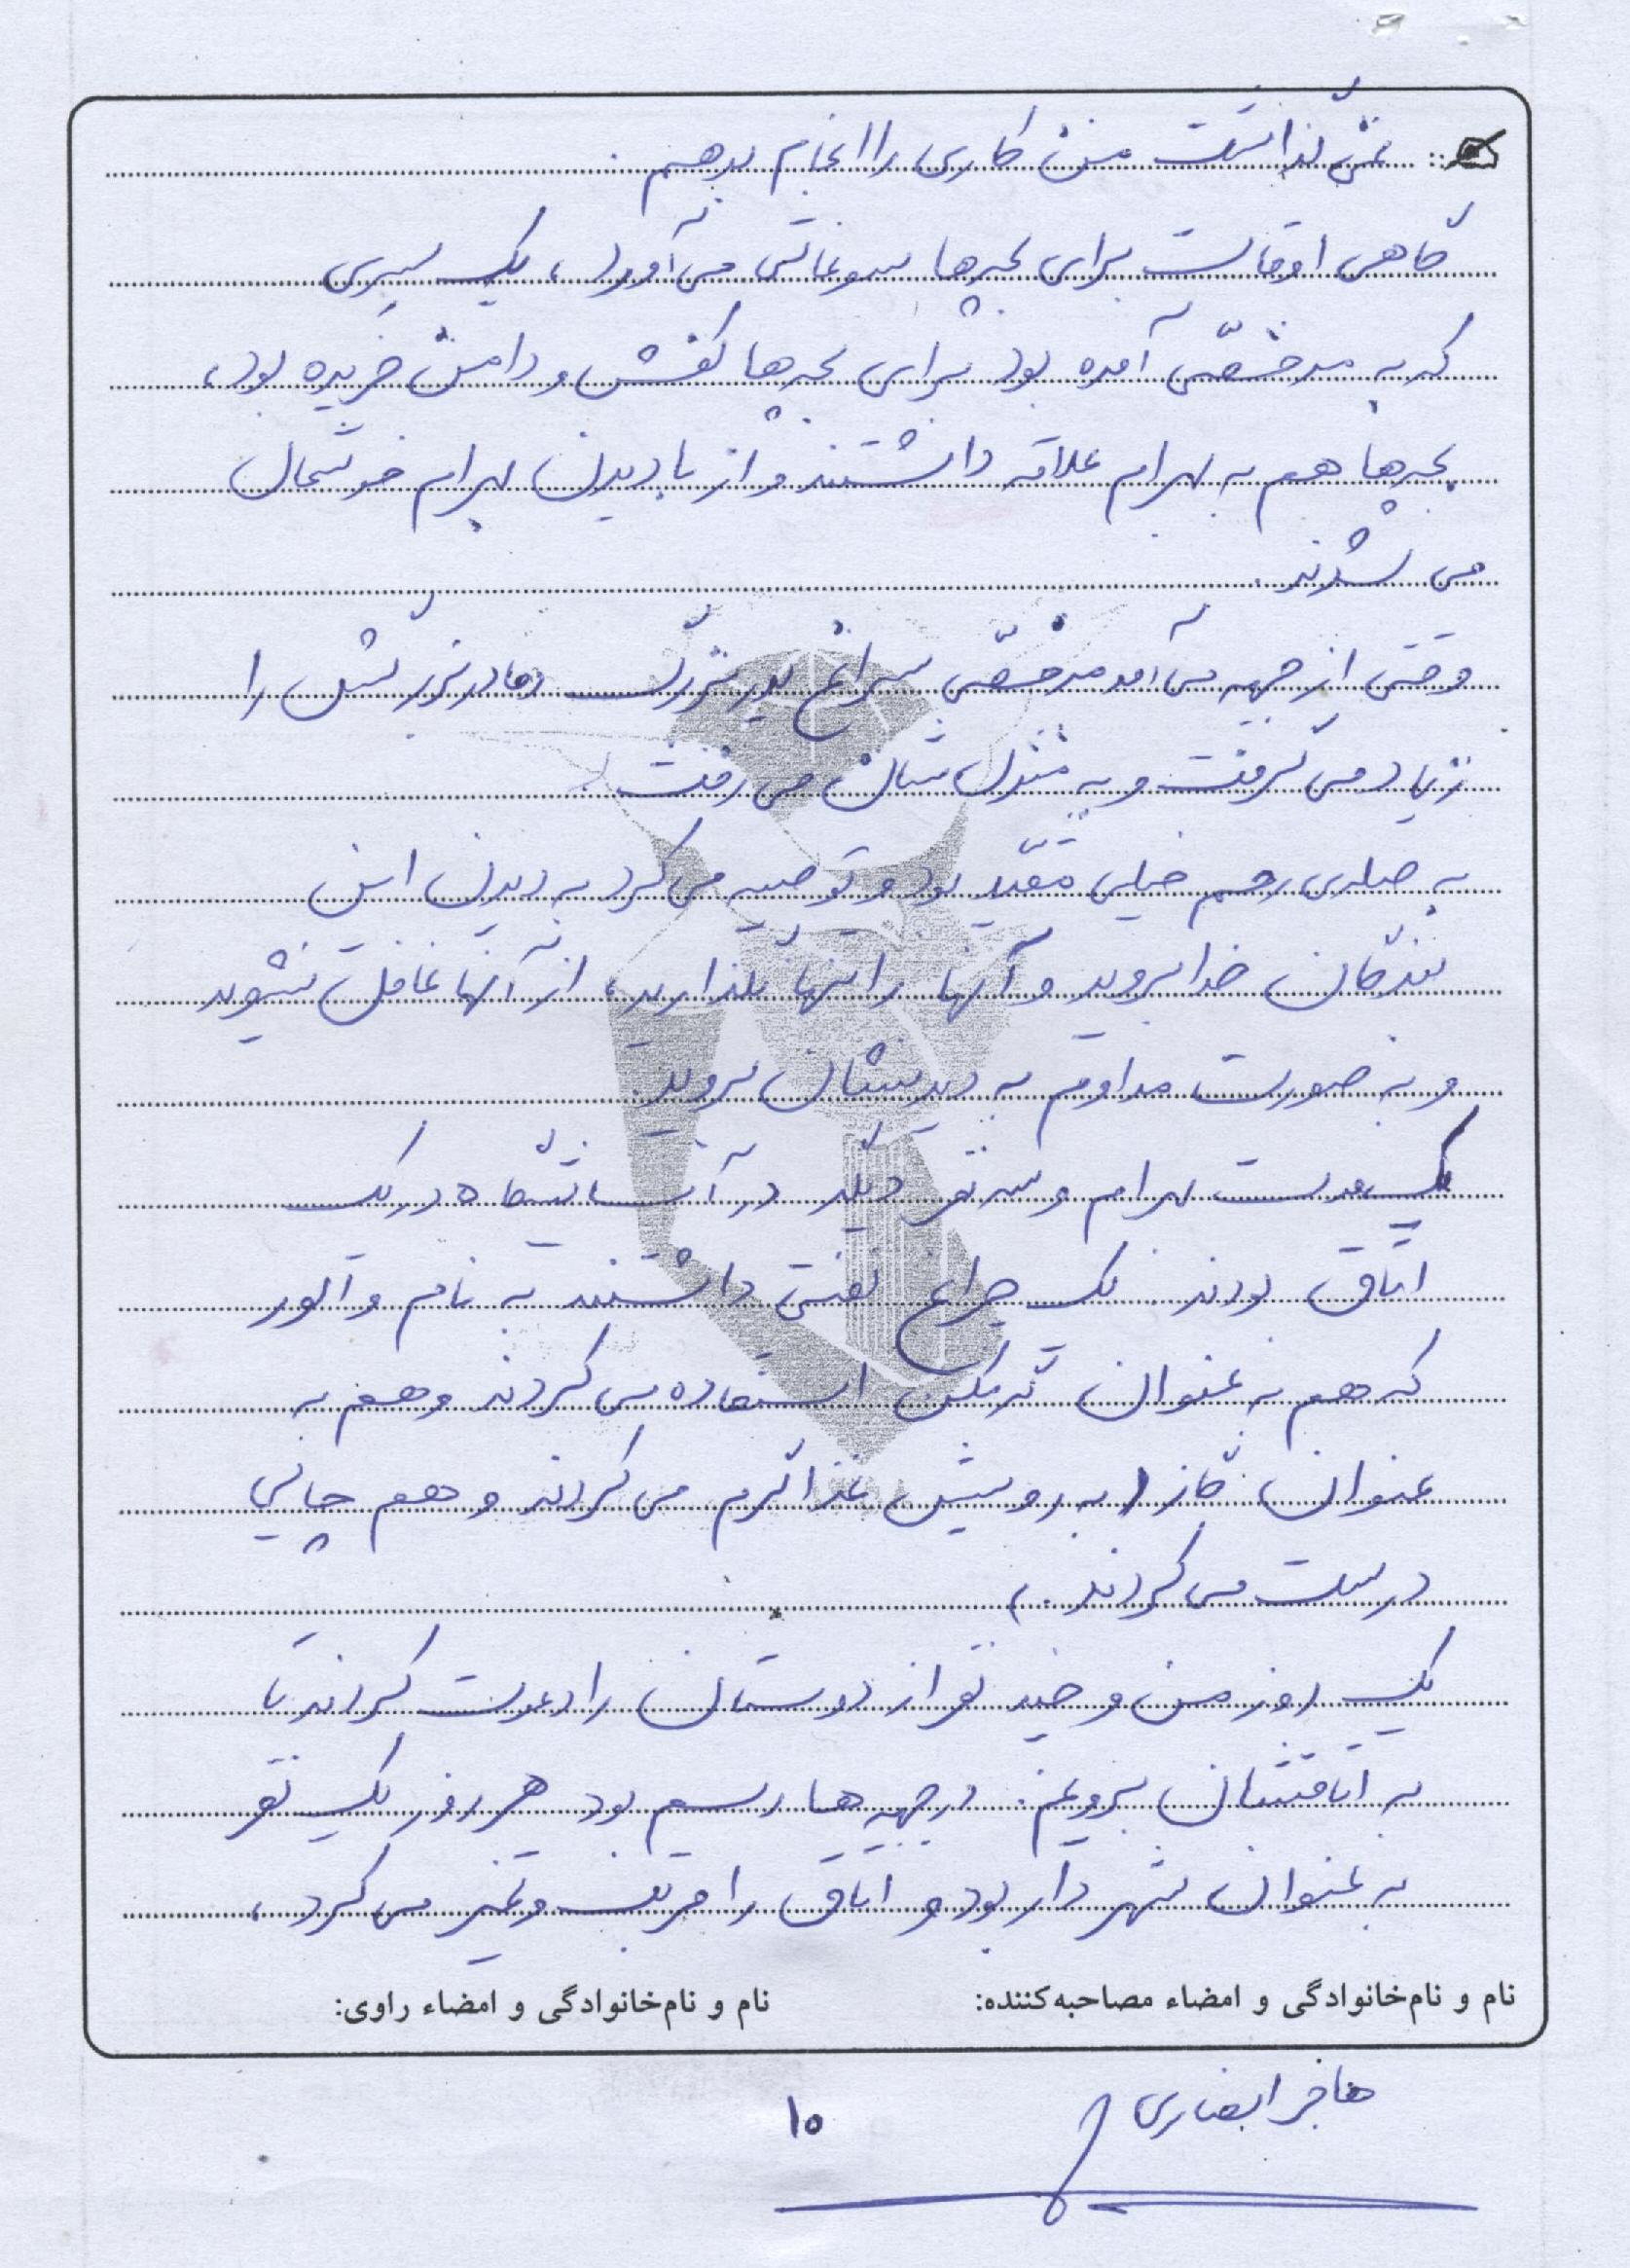 نمی‌گذاشت من کاری را انجام بدهم.
گاهی اوقات برای بچه‌ها سوغاتی می‌آورد، یک سری
که به مرخصّی آمده بود برای بچه‌ها کفش و دامن خریده بود،
بچه‌ها هم به بهرام علاقه داشتند و از با دیدن بهرام خوشحال
می شدند.
وقتی از جبهه می‌آمد مرخصّی سراغ پدربزرگ و مادربزرگش را
زیاد می گرفت و به منزل شان می رفت.
به صله‌ی رحم خیلی مقیّد بود و توصیه می کرد به دیدن این
بندگان خدا بروید و آنها را تنها نگذارید، از آنها غافل نشوید
و به صورت مداوم به دیدنشان بروید.
یک مدت بهرام و سه نفر دیگر در آسایشگاه در یک
اتاق بودند. یک چراغ نفتی داشتند به نام والور
که هم به عنوان گرمکن استفاده می کردند و هم به
عنوان گاز (به رویش غذا گرم می کردند و هم چایی
درست می کردند.)
یک روز من و چند نفر از دوستان را دعوت کردند تا
به اتاقشان برویم. در جبهه ها رسم بود هر روز یک نفر
به عنوان شهردار بود و اتاق را مرتب و تمیز می کرد،
نام و نام‌خانوادگی و امضاء مصاحبه‌کننده: نام و نام‌خانوادگی و امضاء راوی:
هاجر انصاری
۱۵